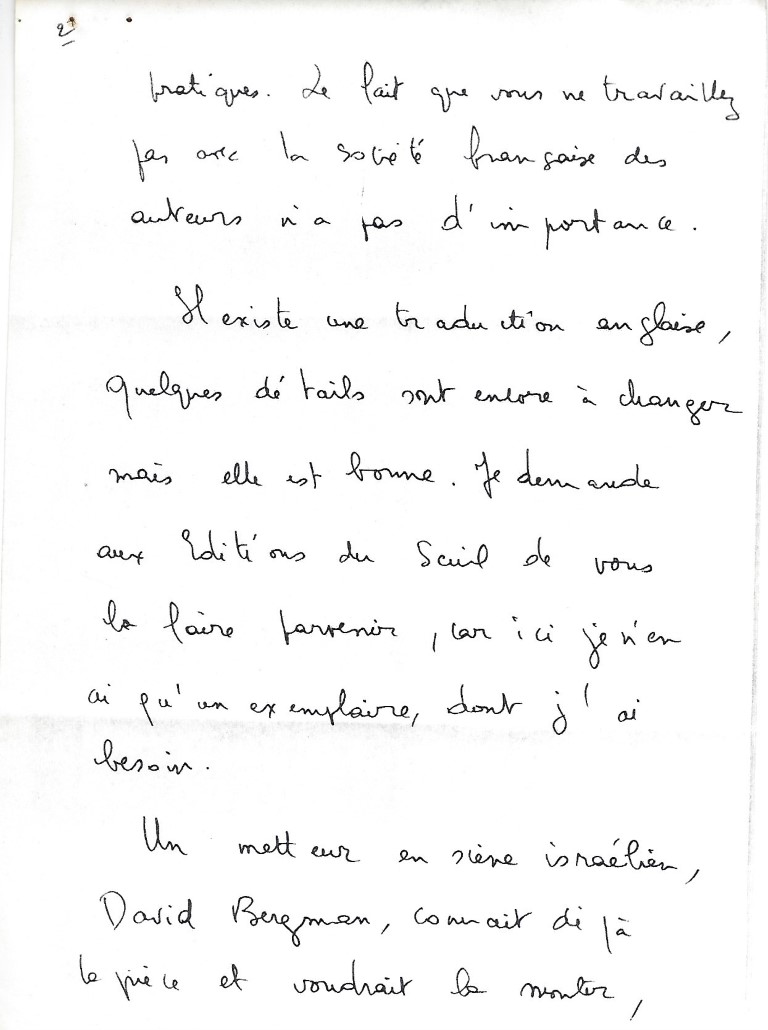 2
pratiques. Le fait que vous ne travaillez
pas avec la société française des
auteurs n'a pas d'importance.
Il existe une traduction anglaise,
quelques détails sont encore à changer
mais elle est bonne. Je demande
aux Editions du Seuil de vous
la faire parvenir, car ici je n'en
ai qu'un exemplaire, dont j'ai
besoin.
Un metteur en scène israélien,
David Bergman, connait déjà
la pièce et voudrait la monter,